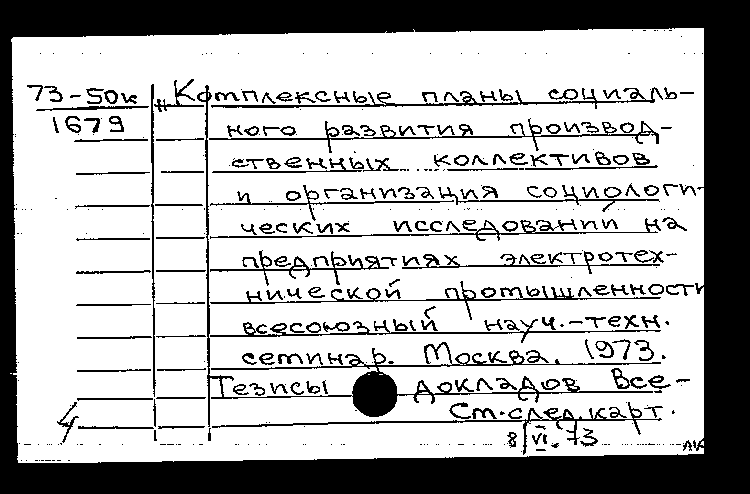 73-50к „Комплексные планы социаль-
1679 ного развития производ-
ственных коллективов
и организация социологи-
ческих исследований на
предприятиях электротех-
нической промышленности
всесоюзный науч.-техн.
семинар. Москва. 1973.
Тезисы докладов Все-
См.след.карт.
8/VI.73